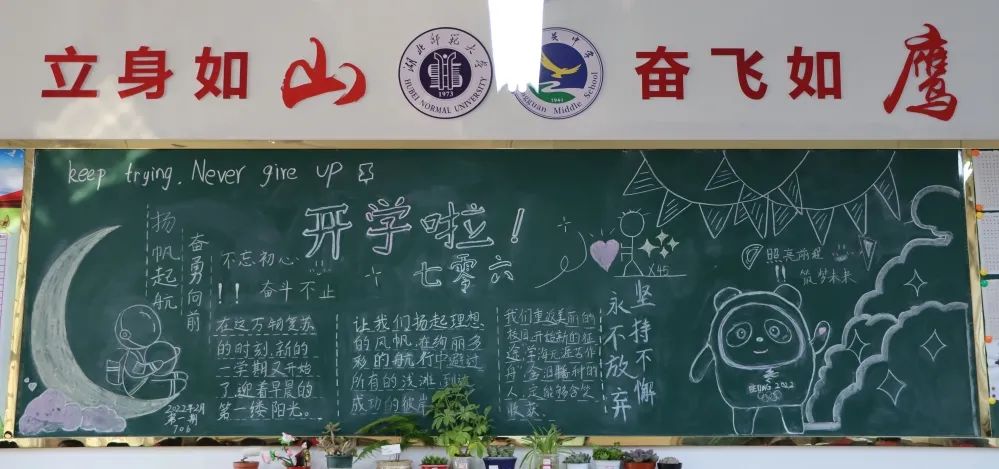 立身如山
湖北师范大学
HUBEI NORMAL UNIVERSITY
1973
中学
guan Middle School
1941
奋飞如鹰
keep trying. Never give up
开学啦！
七零六
扬帆起航
奋勇向前
不忘初心
!! 奋斗不止
在这万物复苏
的时刻,新的
一学期又开始
了,迎着早晨的
第一缕阳光。
2022年2月
第一期
706
让我们扬起理想
的风帆,在绚丽多
彩的航行中避过
所有的浅滩,到达
成功的彼岸
我们重返美丽的
校园,开始新的征
途,学海无涯苦作
舟,含泪播种的
人一定能够含笑
收获
x45
坚持不懈
永不放弃
照亮前程
筑梦未来
BEIJING 2022